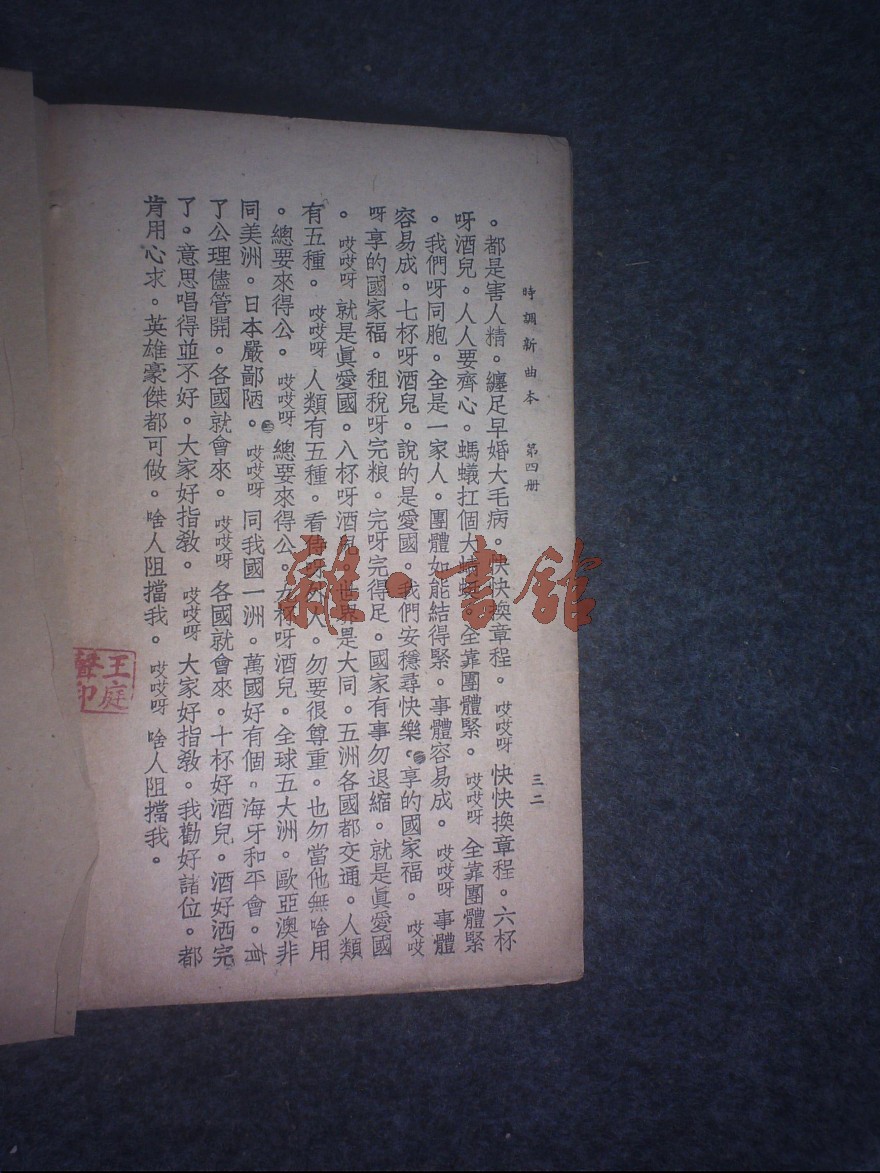 時調新曲本 第四册 三二
。都是害人精。纏足早婚大毛病。快快換章程。哎哎呀 快快換章程。六杯
呀酒兒。人人要齊心。螞蟻扛個大 全靠團體緊。哎哎呀 全靠團體緊
。我們呀同胞。全是一家人。團體如能結得緊。事體容易成。哎哎呀 事體
容易成。七杯呀酒兒。說的是愛國。我們安穩尋快樂。享的國家福。哎哎
呀享的國家福。租稅呀完粮。完呀完得足。國家有事勿退縮。就是眞愛國
。哎哎呀 就是眞愛國。八杯呀酒兒。世界是大同。五洲各國都交通。人類
有五種。哎哎呀 人類有五種。看待呀外人。勿要很尊重。也勿當他無啥用
。總要來得公。哎哎呀 總要來得公。九杯呀酒兒。全球五大洲。歐亞澳非
同美洲。日本嚴鄙陋。哎哎呀 同我國一洲。萬國好有個。海牙和平會。有
了公理儘管開。各國就會來。哎哎呀 各國就會來。十杯好酒兒。酒好洒完
了。意思唱得並不好。大家好指敎。哎哎呀 大家好指敎。我勸好諸位。都
肯用心求。英雄豪傑都可做。啥人阻擋我。哎哎呀 啥人阻擋我。
王庭聲印
雜·書館